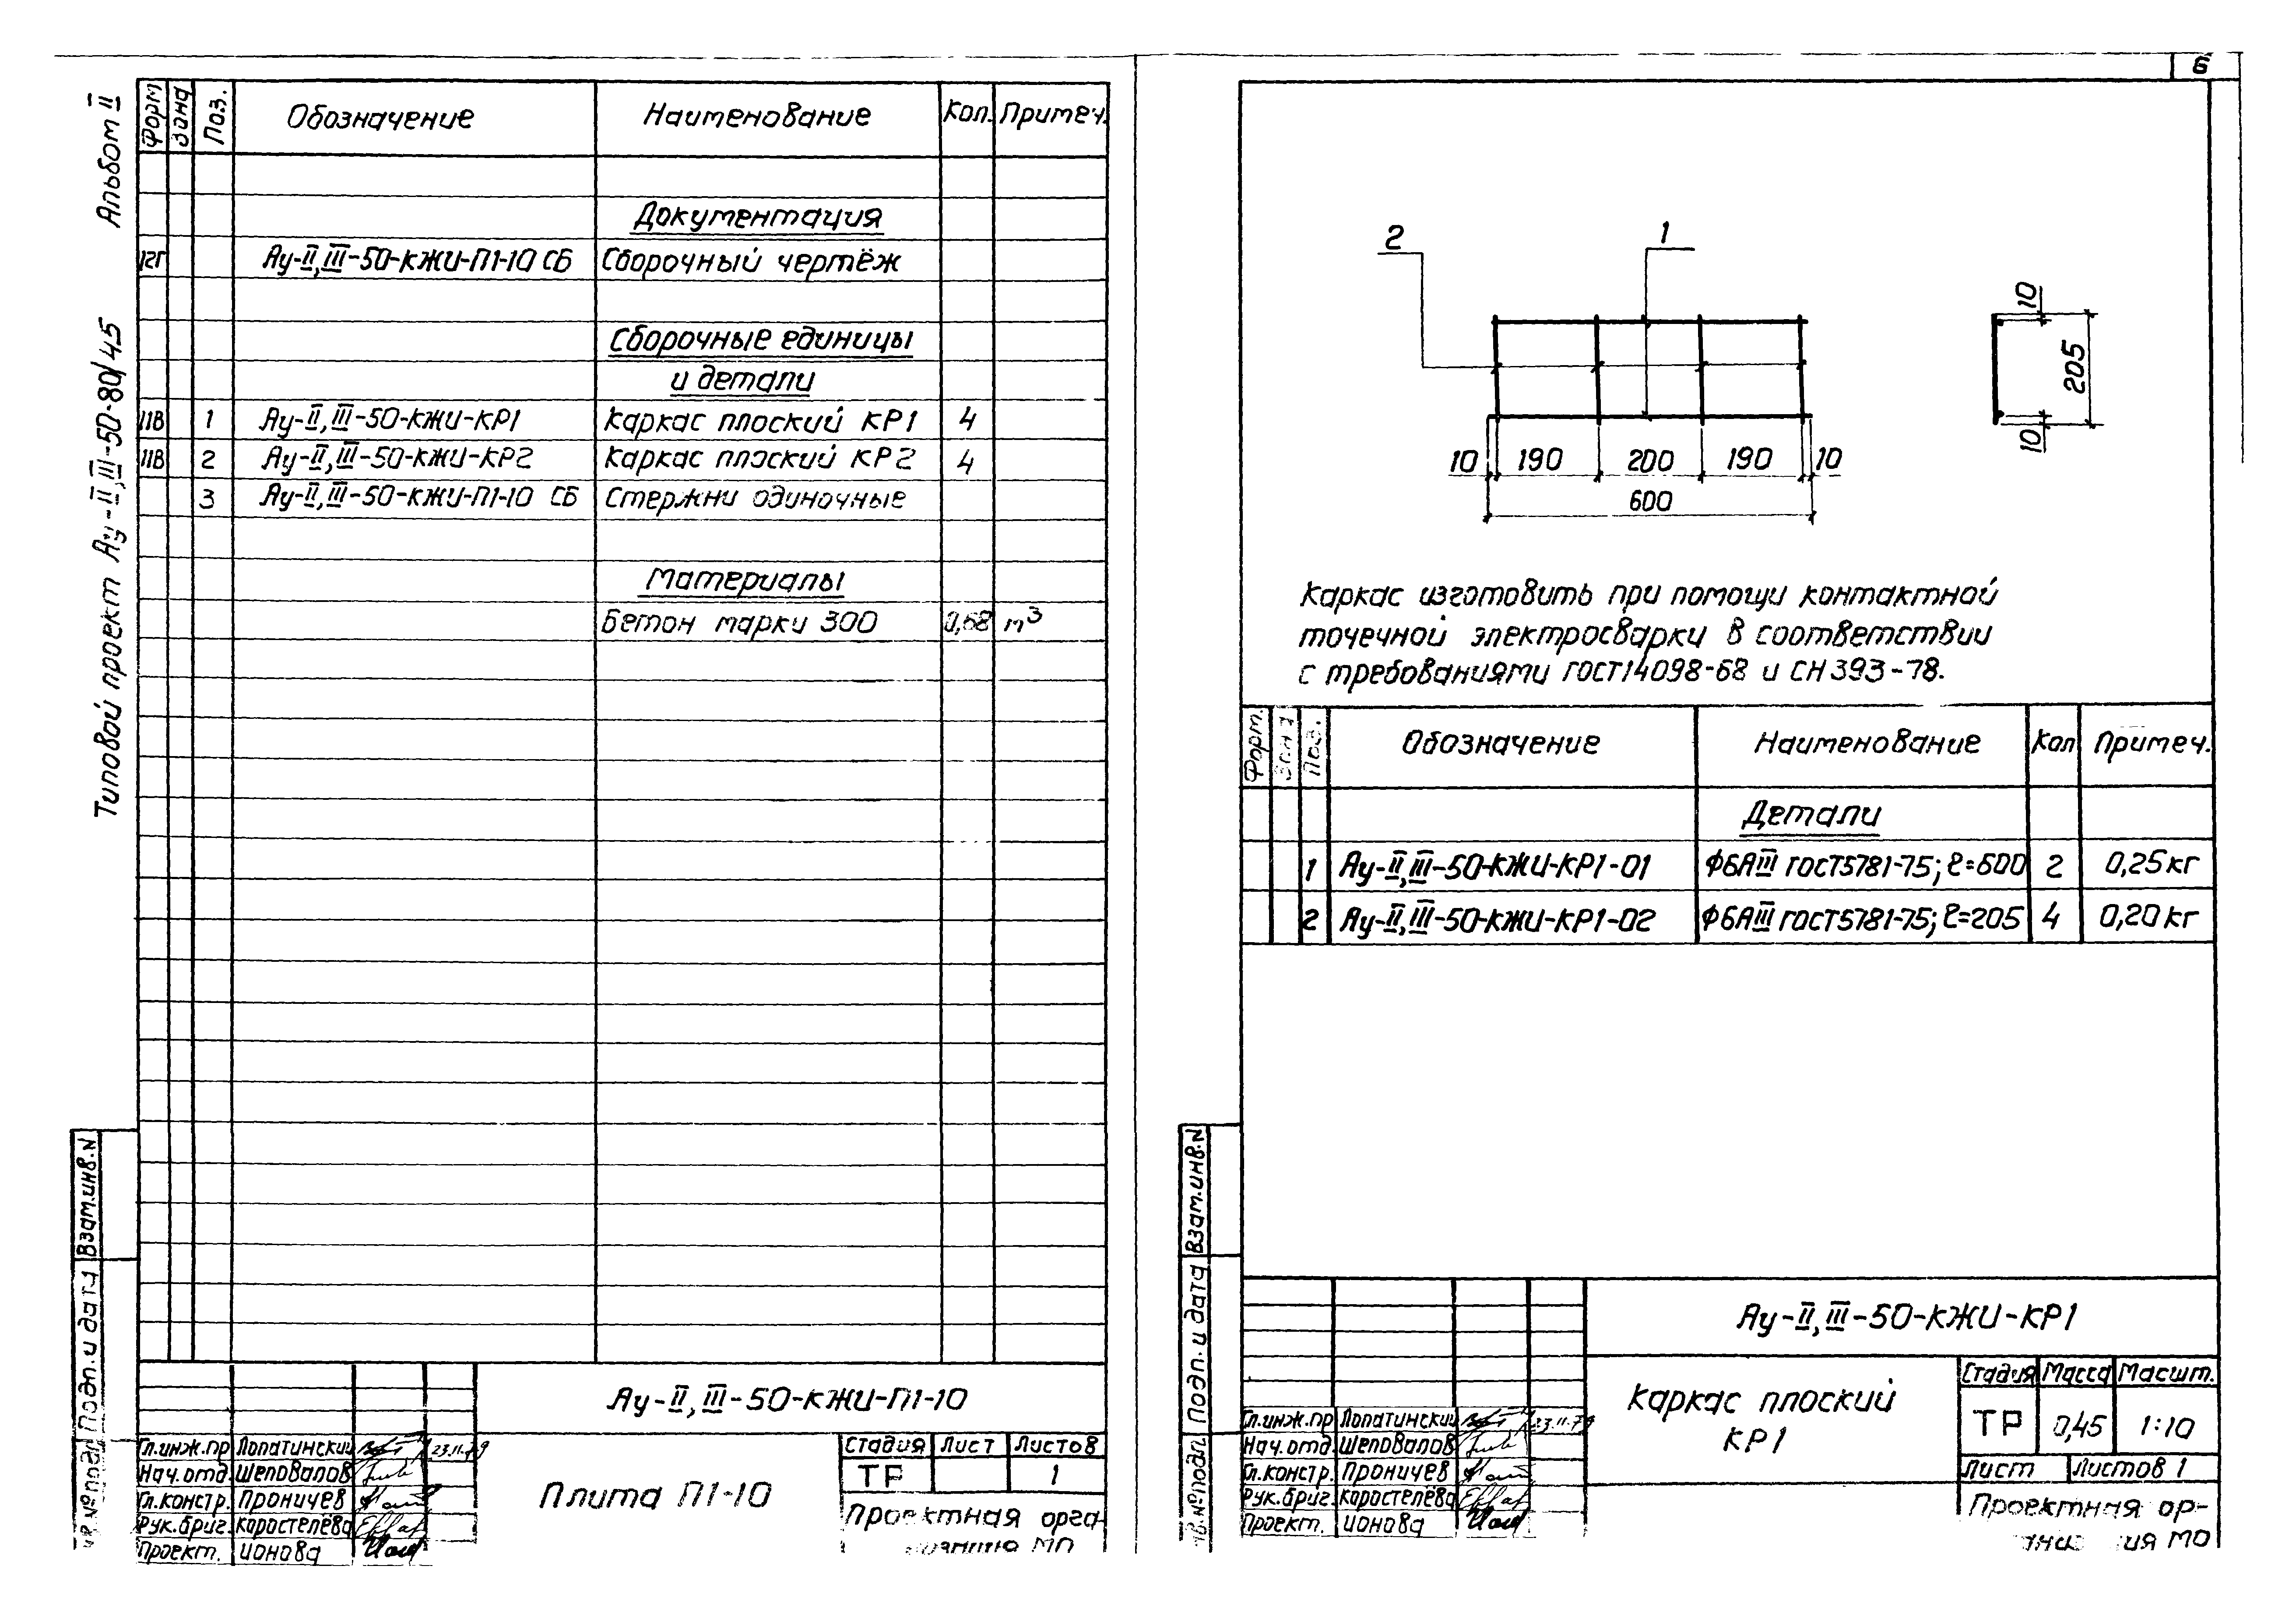 6
Альбом II
Типовой проект Ау-II,III-50-80/45
Форм Зона Поз. Обозначение Наименование Кол. Примеч.
Документация
12Г Ау-II,III-50-КЖИ-П1-10 СБ Сборочный чертёж
Сборочные единицы
и детали
11В 1 Ау-II,III-50-КЖИ-КР1 Каркас плоский КР1 4
11В 2 Ау-II,III-50-КЖИ-КР2 Каркас плоский КР2 4
3 Ау-II,III-50-КЖИ-П1-10 СБ Стержни одиночные
Материалы
Бетон марки 300 0,68 м³
Взам.инв.N
Подп. и дата
№ подл
Ау-II,III-50-КЖИ-П1-10
Гл.инж.пр Лопатинский 23.11.79
Нач.отд. Шеповалов
Гл.констр. Проничев
Рук.бриг. Коростелёва
Проект. Ионова
Плита П1-10
Стадия Лист Листов
ТР 1
Проектная орга-
низация МО
2 1
10 190 200 190 10
600
10
205
10
Каркас изготовить при помощи контактной
точечной электросварки в соответствии
с требованиями ГОСТ14098-68 и СН393-78.
Форм. Зона Поз. Обозначение Наименование Кол Примеч.
Детали
1 Ау-II,III-50-КЖИ-КР1-01 Ф6АIII ГОСТ5781-75; ℓ=600 2 0,25кг
2 Ау-II,III-50-КЖИ-КР1-02 Ф6АIII ГОСТ5781-75; ℓ=205 4 0,20кг
Взам.инв.N
Подп. и дата
№ подл.
Ау-II,III-50-КЖИ-КР1
Гл.инж.пр Лопатинский 23.11.79
Нач.отд Шеповалов
Гл.констр. Проничев
Рук.бриг. Коростелёва
Проект. Ионова
Каркас плоский
КР1
Стадия Масса Масшт.
ТР 0,45 1:10
Лист Листов 1
Проектная ор-
ганизация МО